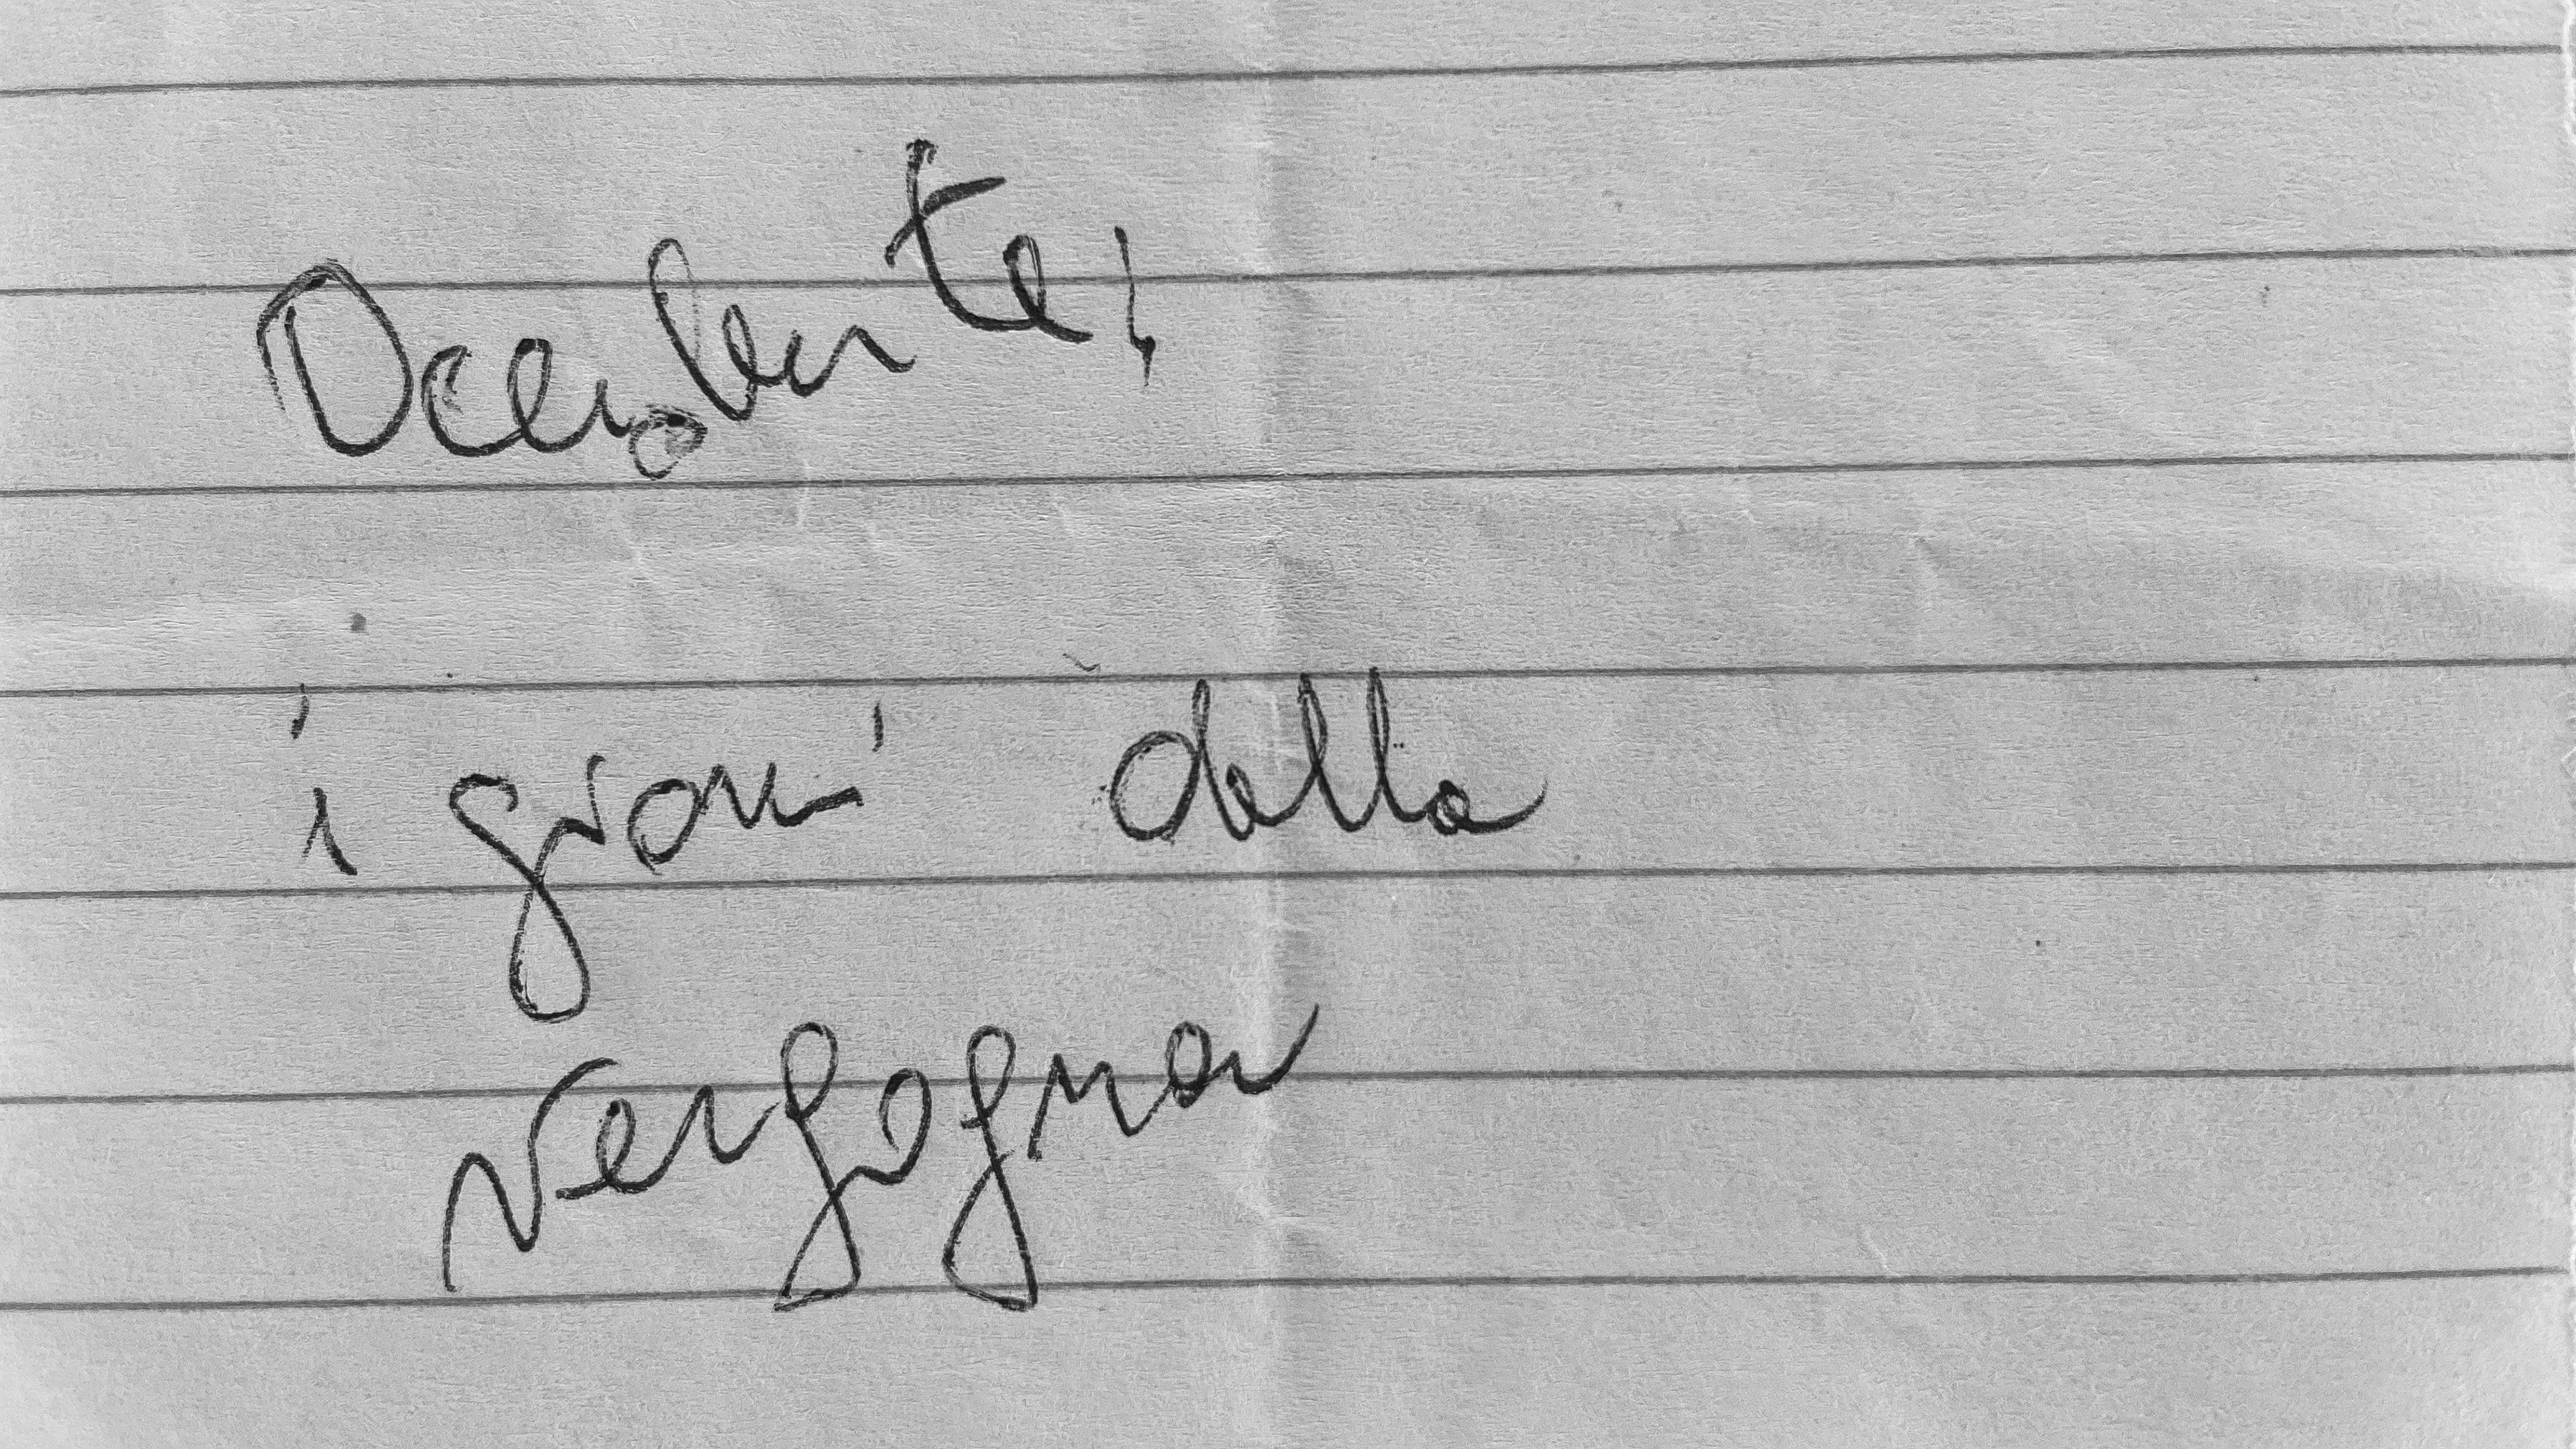 Occidente,
i giorni della
vergogna